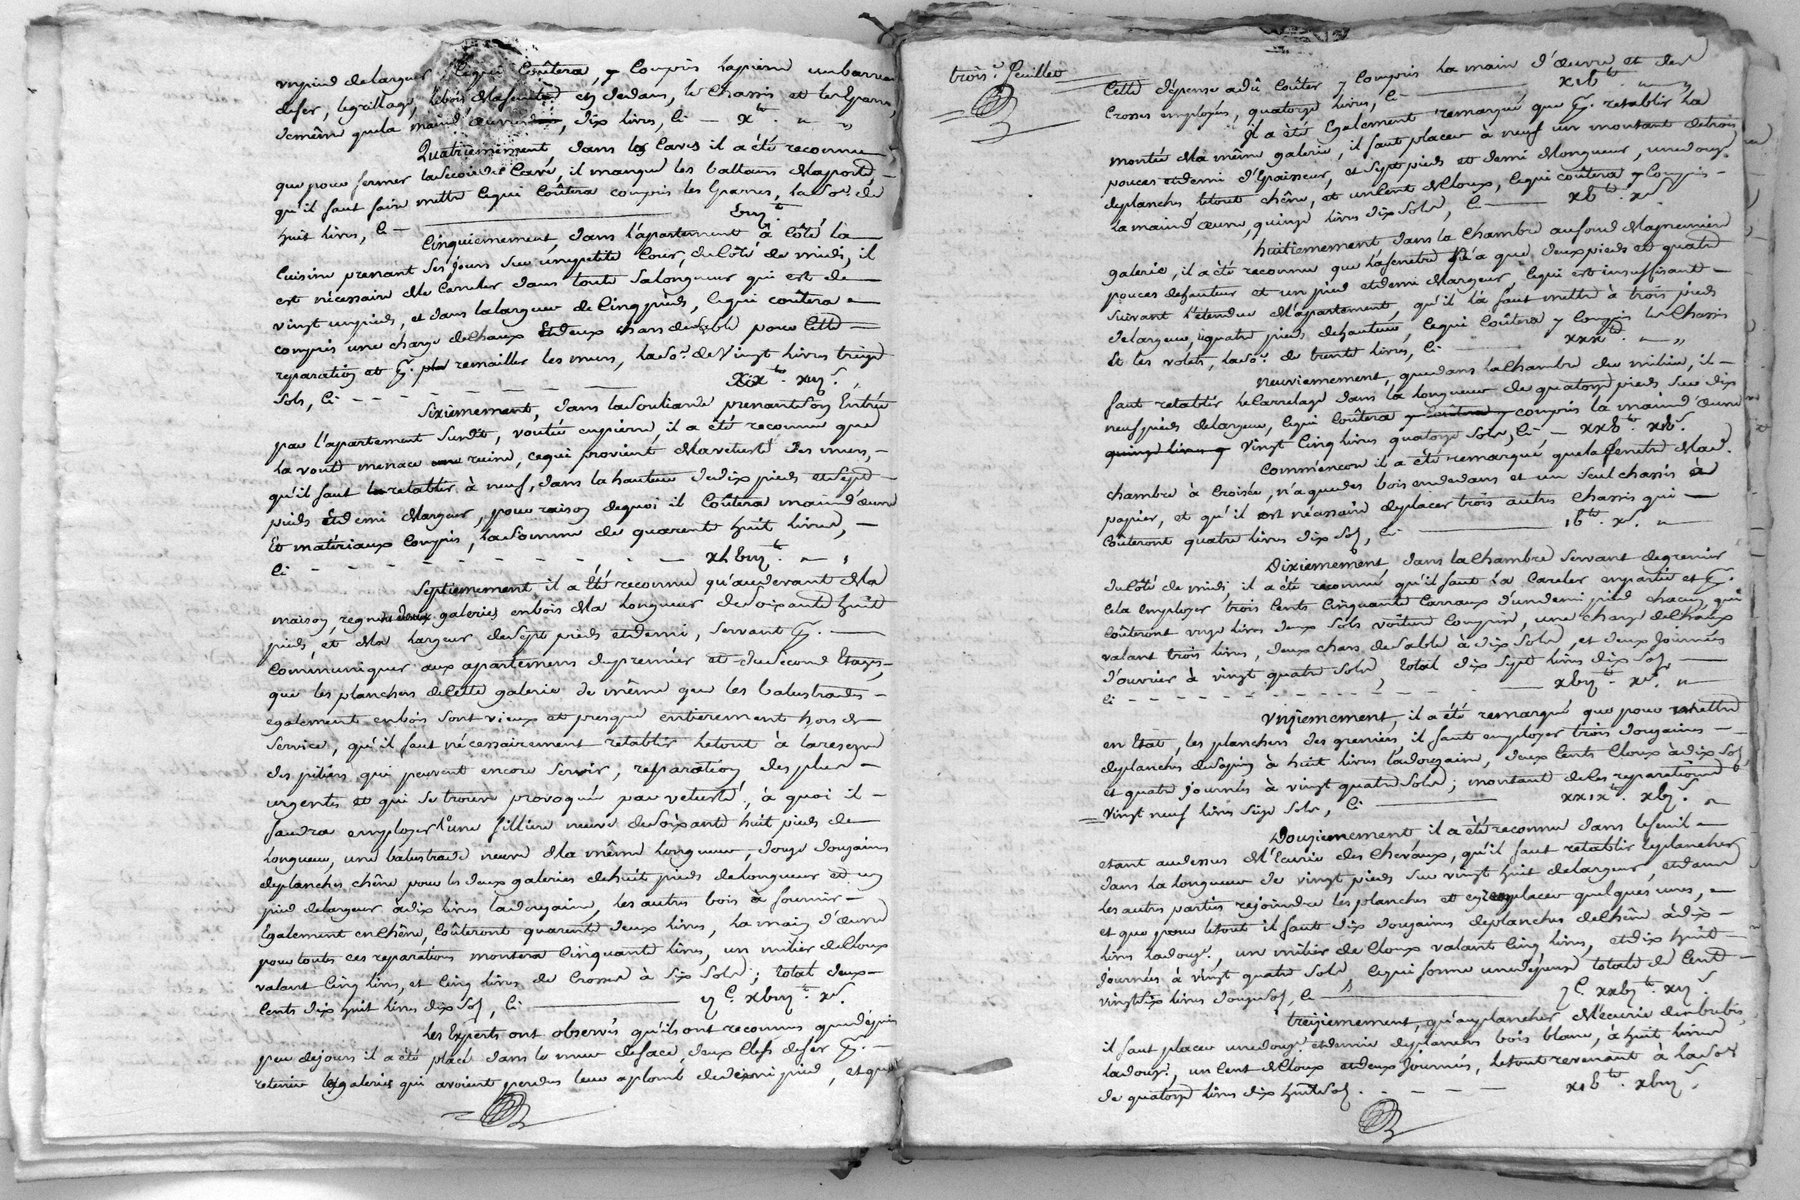 un pied de largeur, ce qui coûtera, y compris la pierre un barreau
de fer, le grillage, le bois de la fenetre en dedans, le chassis et les Eparres,
de même que la main d'œuvre, dix livres, Ci — x ₶ . " "
Quatriemement dans les Caves il a été reconnu
que pour fermer la seconde Cave, il manque les battans de la porte
qu'il faut faire mettre ce qui coûtera compris les Eparres, la so.e de
huit livres, Ci — viij ₶
Cinquiemement, dans l'apartement à côté la
Cuisine prenant ses jours sur une petite Cour, du Côté de midi, il
est nécessaire de Carreler dans toute sa longueur qui est de
vingt un pieds, et dans la largeur de Cinq pieds, ce qui coûtera
compris une charge de Chaux et deux chars de sable pour cette
reparation et pr. remailler les murs, la so.e de Vingt livres treize
sols, Ci - - - - xix ₶ . xiij s.
Sixiemement, dans la souliarde prenant son Entrée
par l'apartement susdt., voutée en pierre il a été reconnu que
la voute menace ruine, ce qui provient de la vetusté des murs,
qu'il faut la retablir à neuf, dans la hauteur de dix pieds et sept
pieds et demi de largeur, pour raison de quoi il Coûtera main d'œuvre
Et matériaux Compris, la somme de quarente huit livres,
Ci - - - - - - - - xlviij ₶ . " "
Septiemement il a été reconnu qu'au devant de la
maison, regne deux galeries en bois de la longueur de Soixante huit
pieds, et de la largeur de sept pieds et demi, servant pr.
communiquer aux appartemens du premier et du second Etages,
que les planchers de Cette galerie de même que les balustrades
egalement en bois sont vieux et presque entierement hors de
Service, qu'il faut nécessairement retablir le tout à la reserve
des piliers qui peuvent encore servir, reparation, des plus
urgentes et qui se trouve provoquée par vetusté, à quoi il
faudra employer 1.° une fillière neuve de soixante huit pieds de
longueur, une balustrade neuve de la même longueur, douze douzaines
de planches chêne pour les deux galeries de huit pieds de longueur et un
pied de largeur à dix livres la douzaine, les autres bois à fournir
Egalement en Chêne, Coûteront quarente deux livres, la main d'œuvre
pour toutes ces reparations montera Cinquante livres, un milier de Cloux
valant Cinq livres, et Cinq livres de Crosses à Six Sols; total deux
Cents dix huit livres dix sols, Ci — ij C. xviij ₶ . x s.
Les Experts ont observés qu'ils ont reconnus que depuis
peu de jours il a été placé dans le mur de face, deux Clefs de fer pr.
retenir les galeries qui avoient perdus leur aplomb de demi pied, et que
trois.e feuillet
Cette dépense a dû coûter y compris la main d'œuvre et des
Crosses employées, quatorze livres, Ci — xiv ₶ . " "
Il a été Egalement remarqué que pr. retablir la
montée de la même galerie, il faut placer à neuf un montant de trois
pouces et demi d'épaisseur, et sept pieds et demi de longueur, une douz.e
de planches le tout chêne, et un Cent de Cloux, ce qui coûtera y Compris
la main d'œuvre, quinze livres dix Sols, Ci — xv ₶ . x s.
huitiemement dans la Chambre au fond de la premiere
galerie, il a été reconnu que la fenetre n'a que deux pieds et quatre
pouces de hauteur et un pied et demi de largeur, ce qui est insuffisant
suivant l'etendue de l'apartement, qu'il la faut mettre à trois pieds
de largeur, quatre pieds de hauteur, ce qui Coûtera y Compris le Chassis
Et les volets, la so.e de trente livres, Ci — xxx ₶ . " "
neuviemement, que dans la Chambre du milieu, il
faut retablir le Carrelage dans la longueur de quatorze pieds sur dix
neuf pieds de largeur, ce qui Coûtera y compris la main d'œuvre
Vingt Cinq livres quatorze Sols, Ci — xxv ₶ . xiv s.
Comm'encore il a été remarqué que la fenetre de lad.e
chambre à Croisée, n'a que des bois en dedans et un seul chassis à
papier, et qu'il est nécessaire de placer trois autres Chassis qui
Coûteront quatre livres dix sols, Ci — iv ₶ . x s. "
Dixiemement dans la Chambre servant de grenier
du Côté de midi il a été reconnu qu'il faut la Careler en partie et pr.
Cela Employer trois Cents Cinquante Carraux d'un demi pied chacun, qui
Coûteront onze livres deux sols voiture comprise, une charge de Chaux
valant trois livres, deux chars de sable à dix sols, et deux journées
d'ouvrier à vingt quatre Sols, total dix sept livres dix sols
Ci - - - - - - - xvij ₶ . x s. "
Onziemement, il a été remarqué que pour remettre
en Etat, les planchers des greniers il faut employer trois douzaines
de planches de sapin à huit livres la douzaine, deux Cents Cloux à dix sols
et quatre journées à vingt quatre Sols; montant de Ces reparations
Vingt neuf livres seize Sols, Ci — xxix ₶ . xvj s. "
Douziemement il a été reconnu dans le fenil
etant audessus de l'Ecurie des Chevaux, qu'il faut retablir le plancher
dans la longueur de vingt pieds sur vingt huit de largeur, et dans
les autres parties rejoindre les planches et en remplacer quelques unes,
et que pour le tout il faut dix douzaines de planches de Chêne à dix
livres la douz.e, un milier de Cloux valant Cinq livres, et dix huit
journées à vingt quatre Sols, ce qui forme une dépense totale de Cent
vingt six livres douze sols, Ci — j C. xxvj ₶ . xij s.
treiziemement, qu'au plancher de l'ecurie des brebis,
il faut placer une douz.e et demie de planches bois blanc, à huit livres
la douz.e, un Cent de Cloux et deux journées, le tout revenant à la so.e
de quatorze livres dix huit sols. - - - xiv ₶ . xviij s.